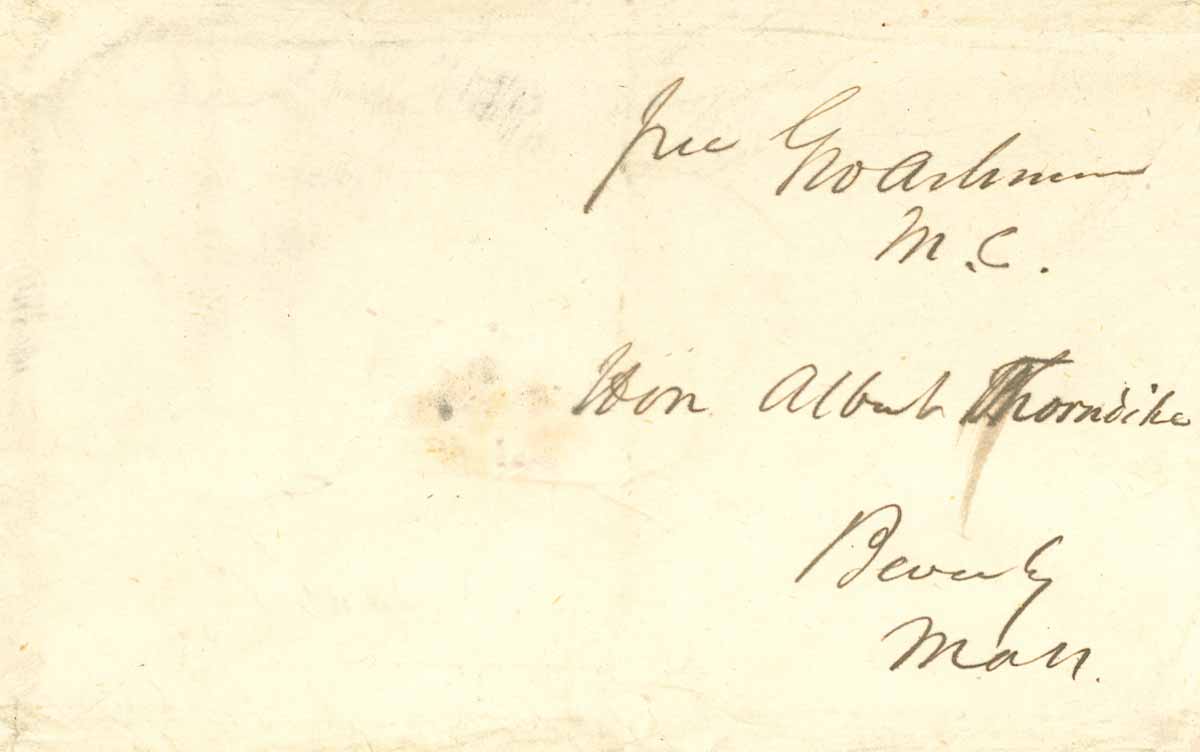 free Geo Ashmun
M.C.
Hon Albert Thorndike
Beverly
Mass.